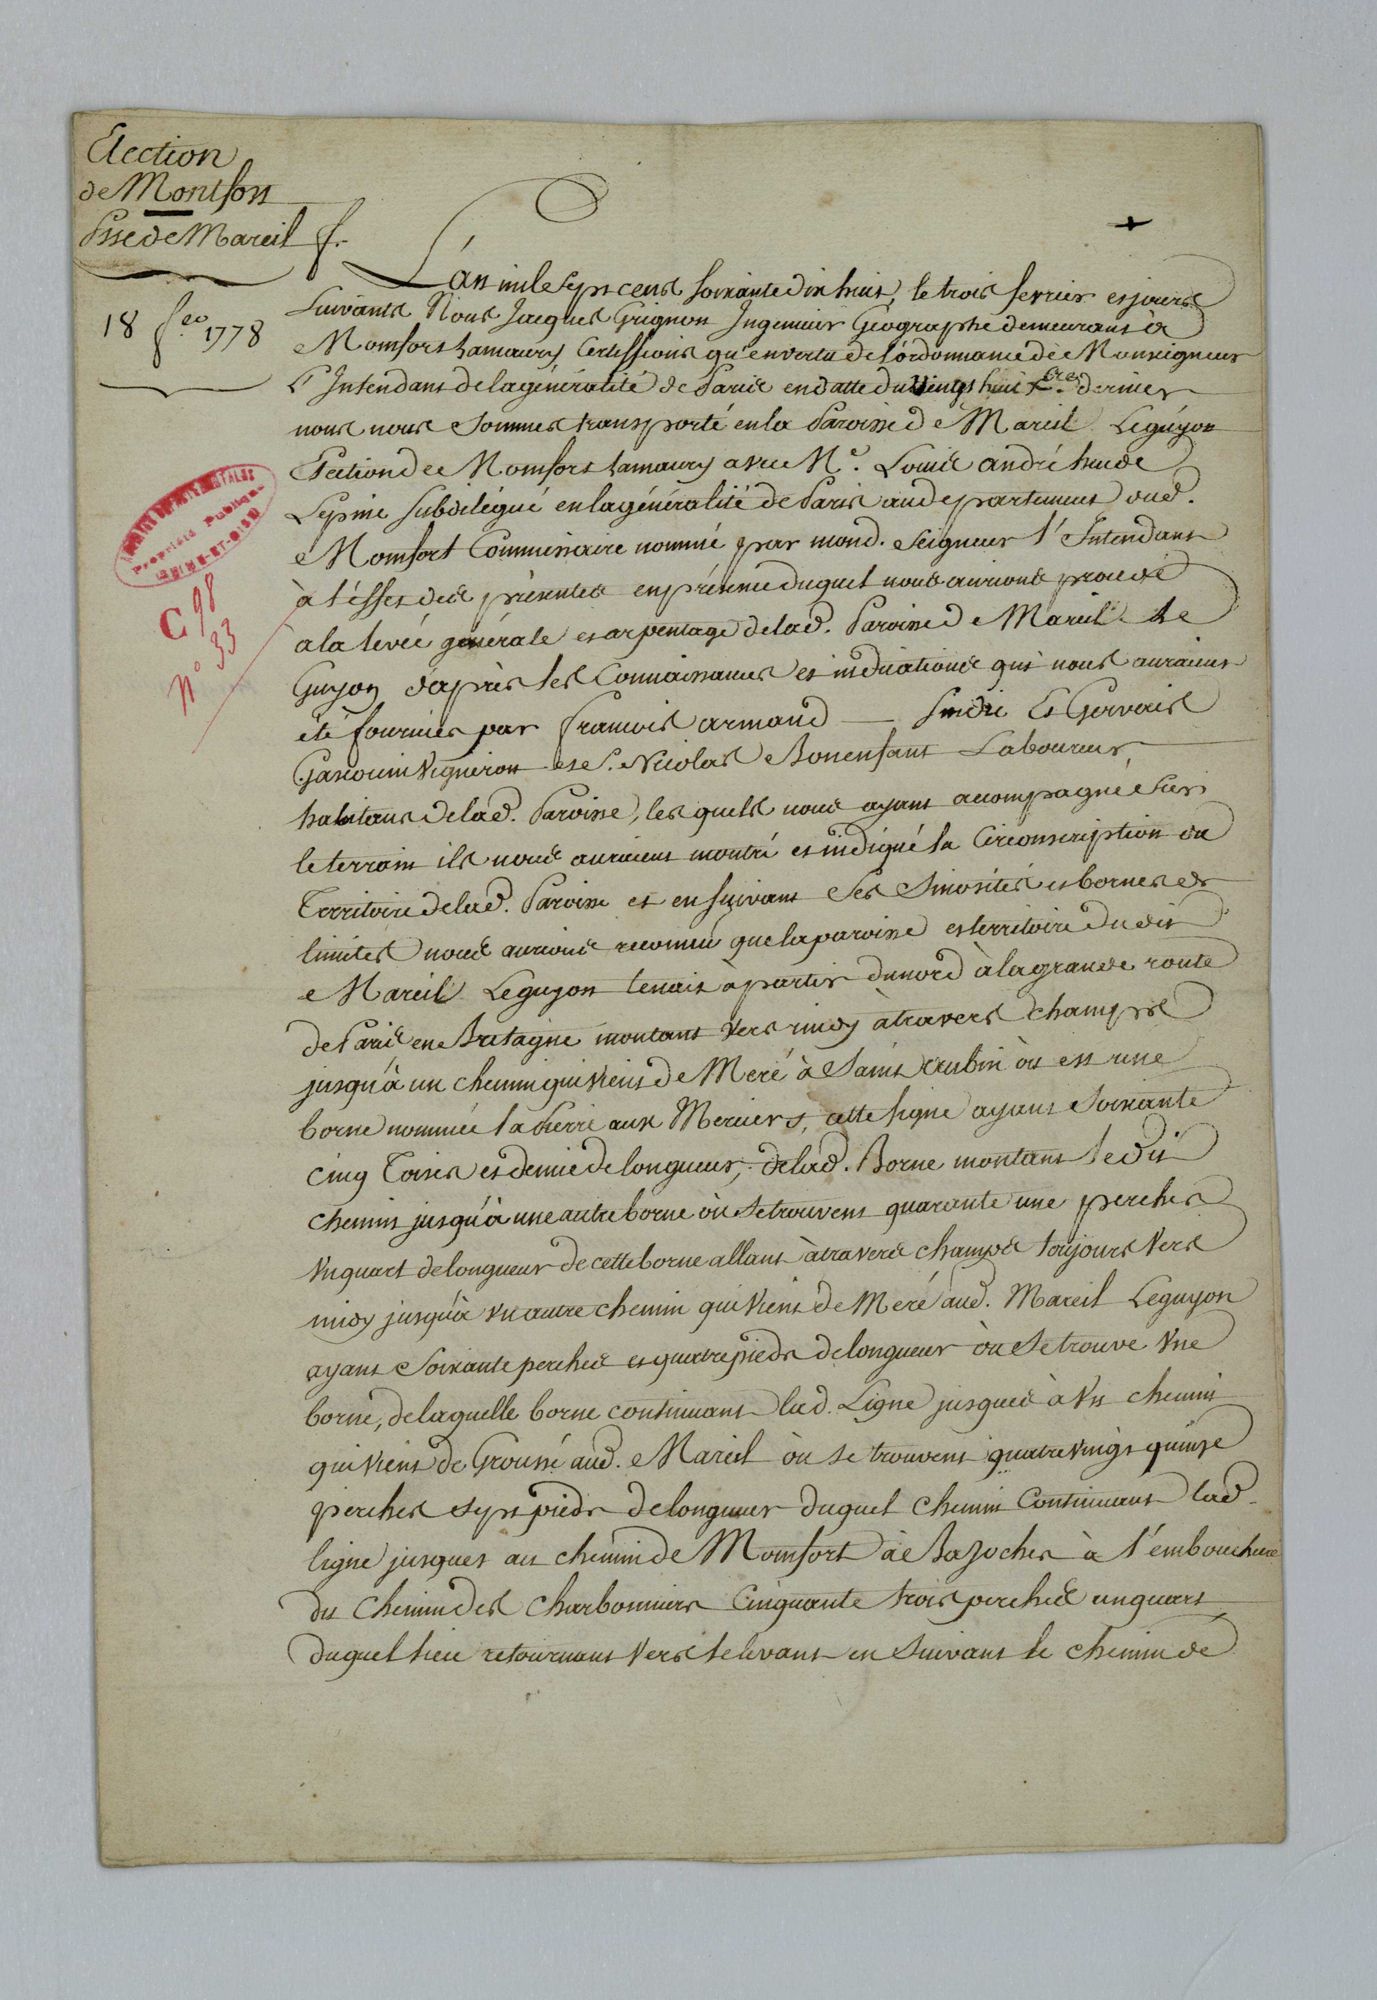 Election
de Montfort
Psse de Mareil
18 fer. 1778
ARCHIVES DEPARTEMENTALES
Propriété Publique
SEINE-ET-OISE
C 98
N° 33
L'an mil sept cens soixante dix huit, le trois fevrier et jours
suivants Nous Jacques Grignon Ingenieur Géographe demeurant à
Momfort Lamaury Certiffions qu'en vertu de l'ordonnance de Monseigneur
L'Intendant de la généralité de Paris en datte du Vingt huit Xbre dernier
nous nous sommes transporté en la Paroisse de Mareil Leguyon
Election de Momfort Lamaury avec Me. Louis andré hude
Lepine subdélégué en la généralité de Paris au departement dud.
Momfort Commissaire nommé par mond. Seigneur l'Intendant
à l'effet des présentes en présence duquel nous aurions procédé
a la levée générale et arpentage de lad. Paroisse de Mareil Le
Guyon d'après les Connaissances et indications qui nous auraient
été fournies par francois armand sindic Et Gervais
Gascouin Vigneron et S. Nicolas Bonenfant Laboureur
habitans de lad. Paroisse, lesquels nous ayant acompagné sur
le terrain ils nous auraient montré et indiqué la Circonscription du
Territoire de lad. Paroisse et en suivant ses Sinosités et bornes et
limites nous aurions reconnu que la paroisse et territoire dudit
Mareil Leguyon tenait à partir du nord à la grande route
de Paris en Bretagne montant vers midy à travers champs
jusqu'à un chemin qui vient de Meré à Saint aubin où est une
borne nommée la Pierre aux Merciers, cette ligne ayant Soixante
cinq Toises et demie de longueur, de lad. Borne montant ledit
chemin jusqu'à une autre borne où se trouvent quarante une perches
Vn quart de longueur de cette borne allant à travers champs toujours vers
midy jusqu'à Vn autre chemin qui vient de Meré aud. Mareil Leguyon
ayant Soixante perches et quatre pieds de longueur où se trouve Vne
borne, de laquelle borne continuant lad. Ligne jusques à Vn chemin
qui vient de Groussé aud. Mareil où se trouvent quatre vingt quinze
perches sept pieds de longueur duquel chemin Continuant lad.
ligne jusques au chemin de Momfort à Bazoches à l'embouchure
du chemin des Charbonniers Cinquante trois perches un quart
duquel lieu retournant vers le levant en suivant le chemin de